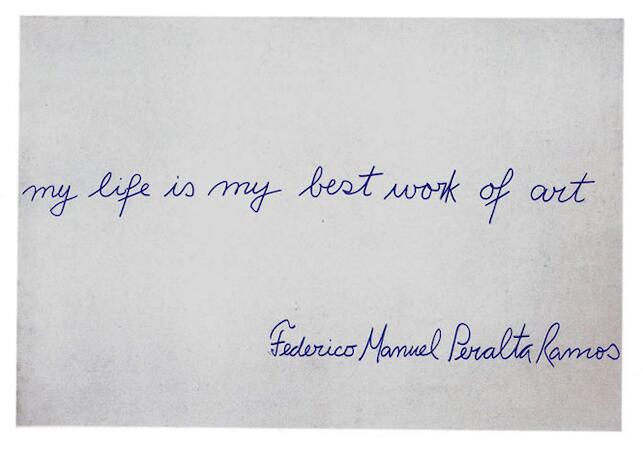 my life is my best work of art
Federico Manuel Peralta Ramos